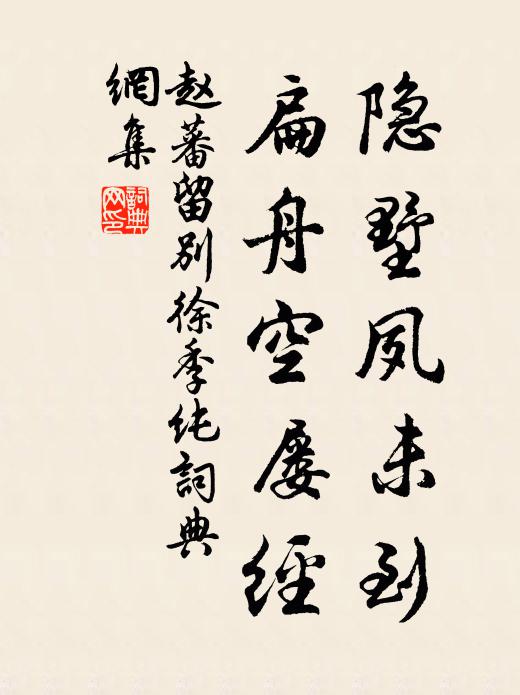 隐墅夙未到
扁舟空屡經
赵蕃留别徐季纯詞典
網集
詞典
网印